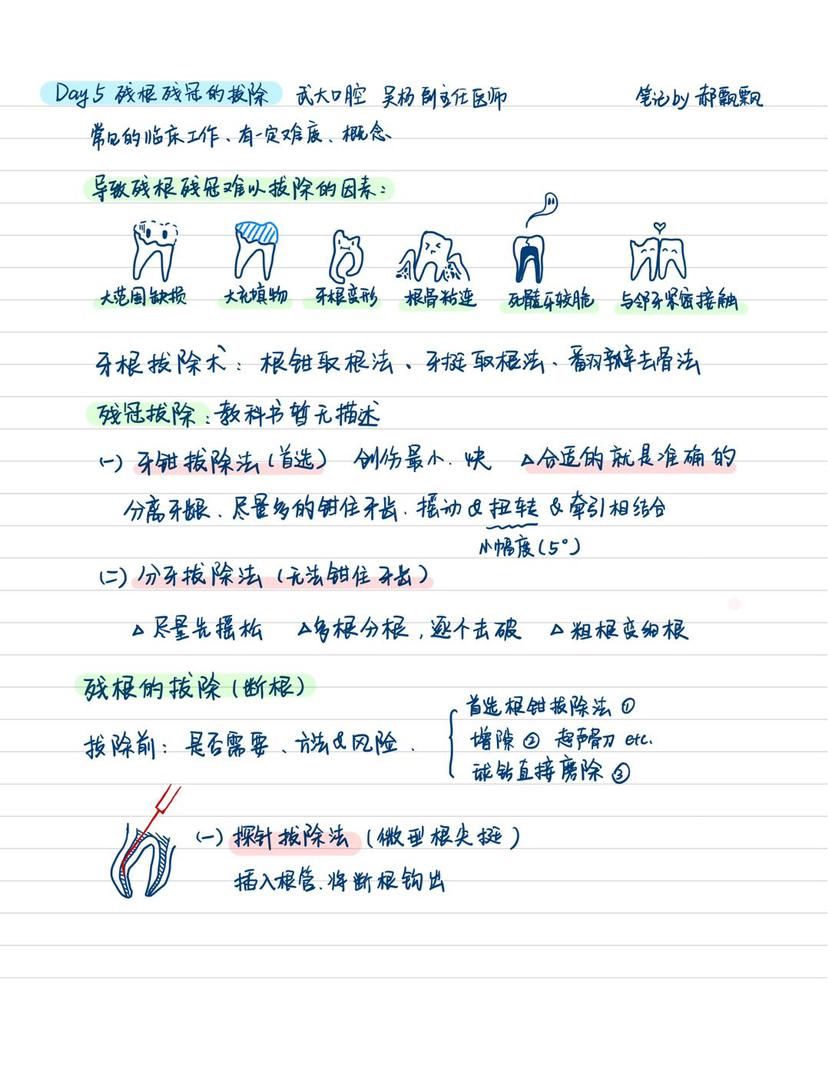 Day 5 残根残冠的拔除 武大口腔 吴杨副主任医师 笔记by 郝飘飘
常见的临床工作、有一定难度、概念
导致残根残冠难以拔除的因素:
大范围缺损 大充填物 牙根变形 根骨粘连 死髓牙较脆 与邻牙紧密接触
牙根拔除术: 根钳取根法、牙挺取根法、翻瓣去骨法
残冠拔除:教科书暂无描述
(一) 牙钳拔除法(首选) 创伤最小.快 △合适的就是准确的
分离牙龈、尽量多的钳住牙齿.摇动&扭转&牵引相结合
小幅度(5°)
(二) 分牙拔除法(无法钳住牙齿)
△尽量先摇松 △多根分根,逐个击破 △粗根变细根
残根的拔除(断根)
拔除前: 是否需要、方法&风险.
首选根钳拔除法①
增隙② 超声骨刀 etc.
球钻直接磨除③
(一) 探针拔除法 (微型根尖挺)
插入根管.将断根钩出